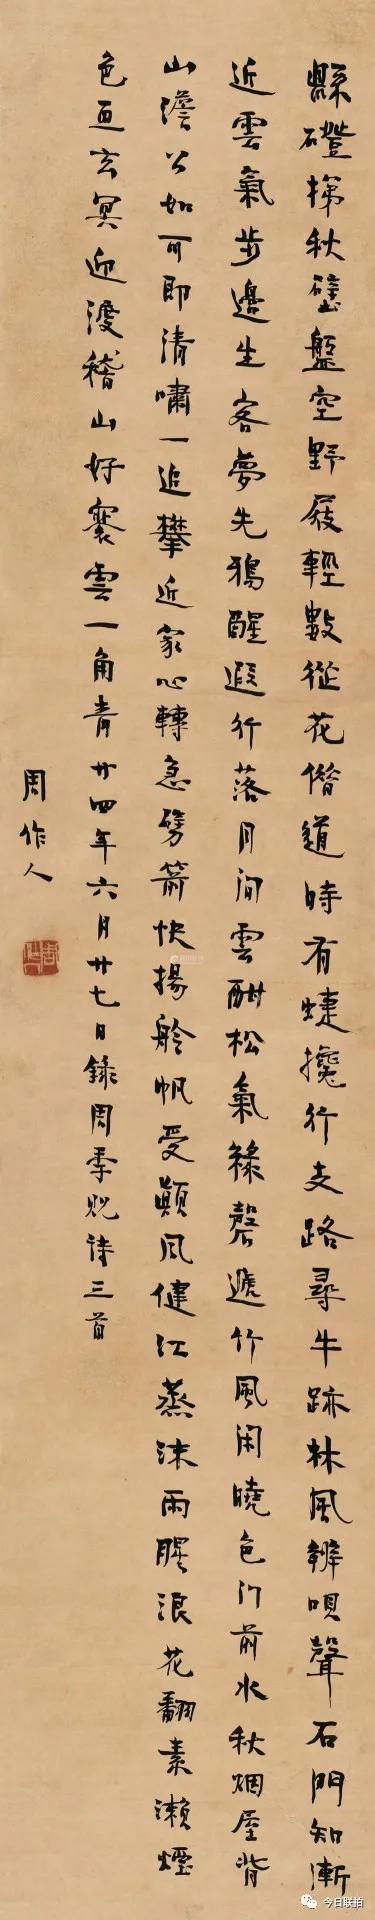 縣磴梯秋壁盤空野屐輕數從花借道時有蜨攙行支路尋牛跡林風辨唄聲石門知漸
近雲氣步邊生客夢先鴉醒遐行落月間雲酣松氣綠磬遞竹風閑曉色門前水秋烟屋背
山澹公如可即清嘯一追攀近家心轉急劈箭快揚舲帆受顛風健江蒸沫雨腥浪花翻素瀨煙
色亘玄冥迎渡稽山好褰雲一角青廿四年六月廿七日錄周季貺詩三首
周作人
今日联拍